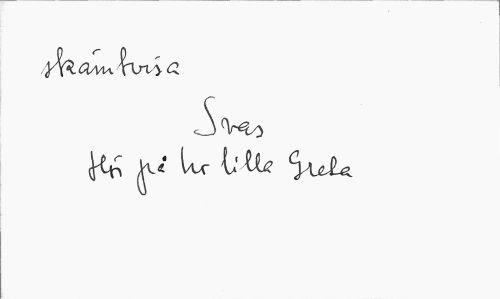 skämtvisa
Svas
Hör på hr lilla Greta